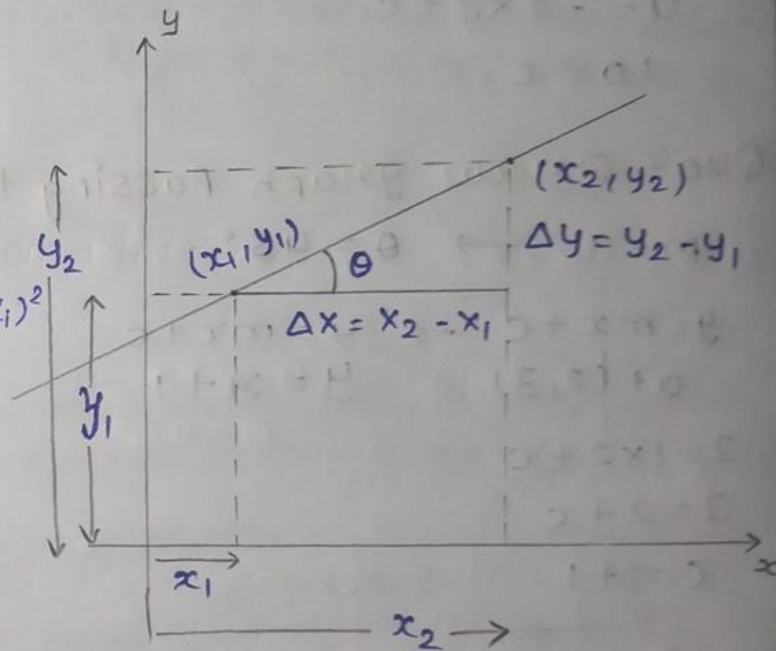 y
(x₂, y₂)
y₂
(x₁, y₁)
θ
Δy = y₂ - y₁
₁)²
Δx = x₂ - x₁
y₁
x
x₁
x₂